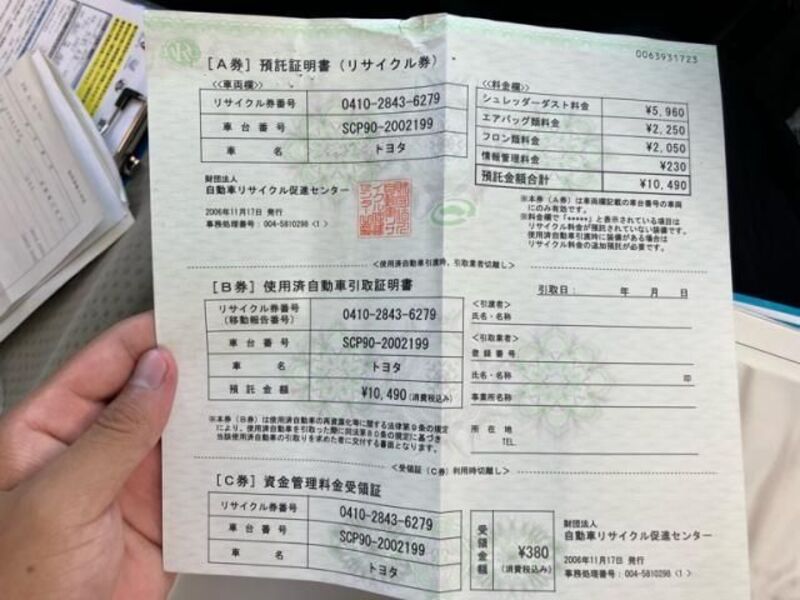 0063931723
[A券] 預託証明書 (リサイクル券)
≪車両欄≫
リサイクル券番号 0410-2843-6279
車台番号 SCP90-2002199
車名 トヨタ
≪料金欄≫
シュレッダーダスト料金 ¥5,960
エアバッグ類料金 ¥2,250
フロン類料金 ¥2,050
情報管理料金 ¥230
預託金額合計 ¥10,490
財団法人
自動車リサイクル促進センター
2006年11月17日 発行
事務処理番号:004-5810298 <1>
※本券(A券)は車両欄記載の車台番号の車両
にのみ有効です。
※料金欄で「*****」と表示されている項目は
リサイクル料金が預託されていない装備です。
使用済自動車引渡時に装備がある場合は
リサイクル料金の追加預託が必要です。
<使用済自動車引渡時、引取業者切離し>
[B券] 使用済自動車引取証明書
リサイクル券番号
(移動報告番号) 0410-2843-6279
車台番号 SCP90-2002199
車名 トヨタ
預託金額 ¥10,490(消費税込み)
引取日: 年 月 日
<引渡者>
氏名・名称
<引取業者>
登録番号
氏名・名称 印
事業所名称
所在地
TEL.
※本券(B券)は使用済自動車の再資源化等に関する法律第9条の規定
により、使用済自動車を引取った際に同法第80条の規定に基づき
当該使用済自動車の引取りを求めた者に交付する書面となります。
<受領証(C券)利用時切離し>
[C券] 資金管理料金受領証
リサイクル券番号 0410-2843-6279
車台番号 SCP90-2002199
車名 トヨタ
受領金額 ¥380
(消費税込み)
財団法人
自動車リサイクル促進センター
2006年11月17日 発行
事務処理番号:004-5810298 <1>